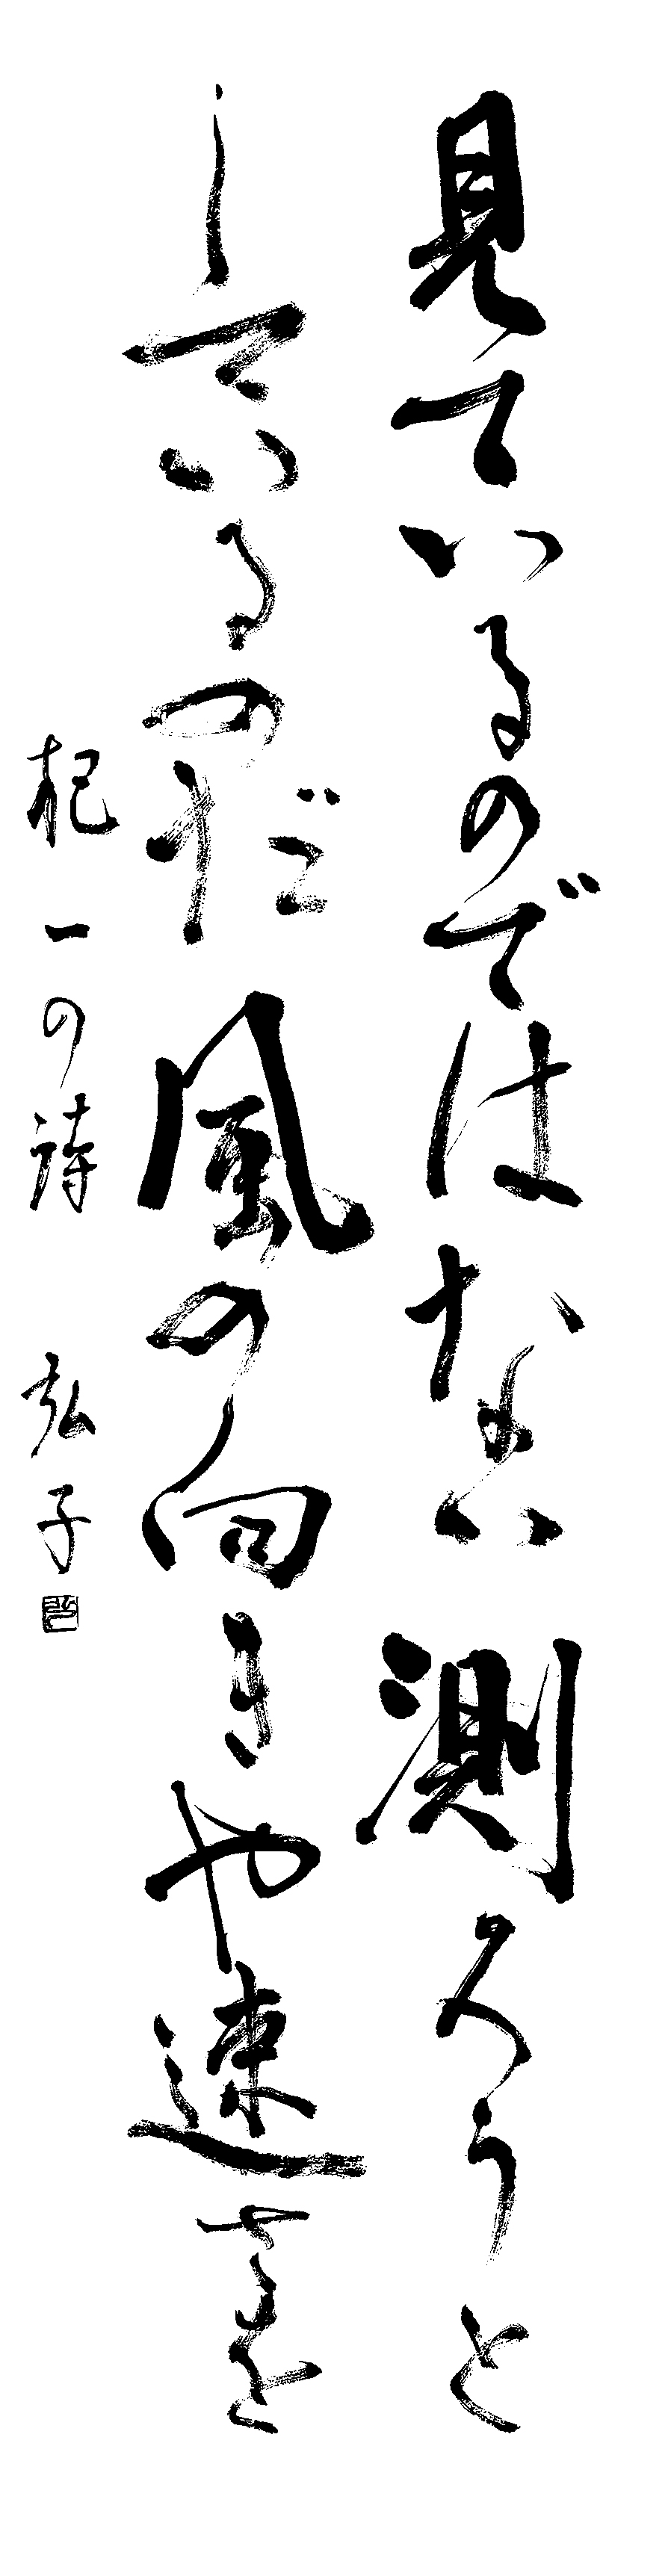 見ているのではない 測ろうと
しているのだ 風の向きや速さを
杞一の詩 弘子